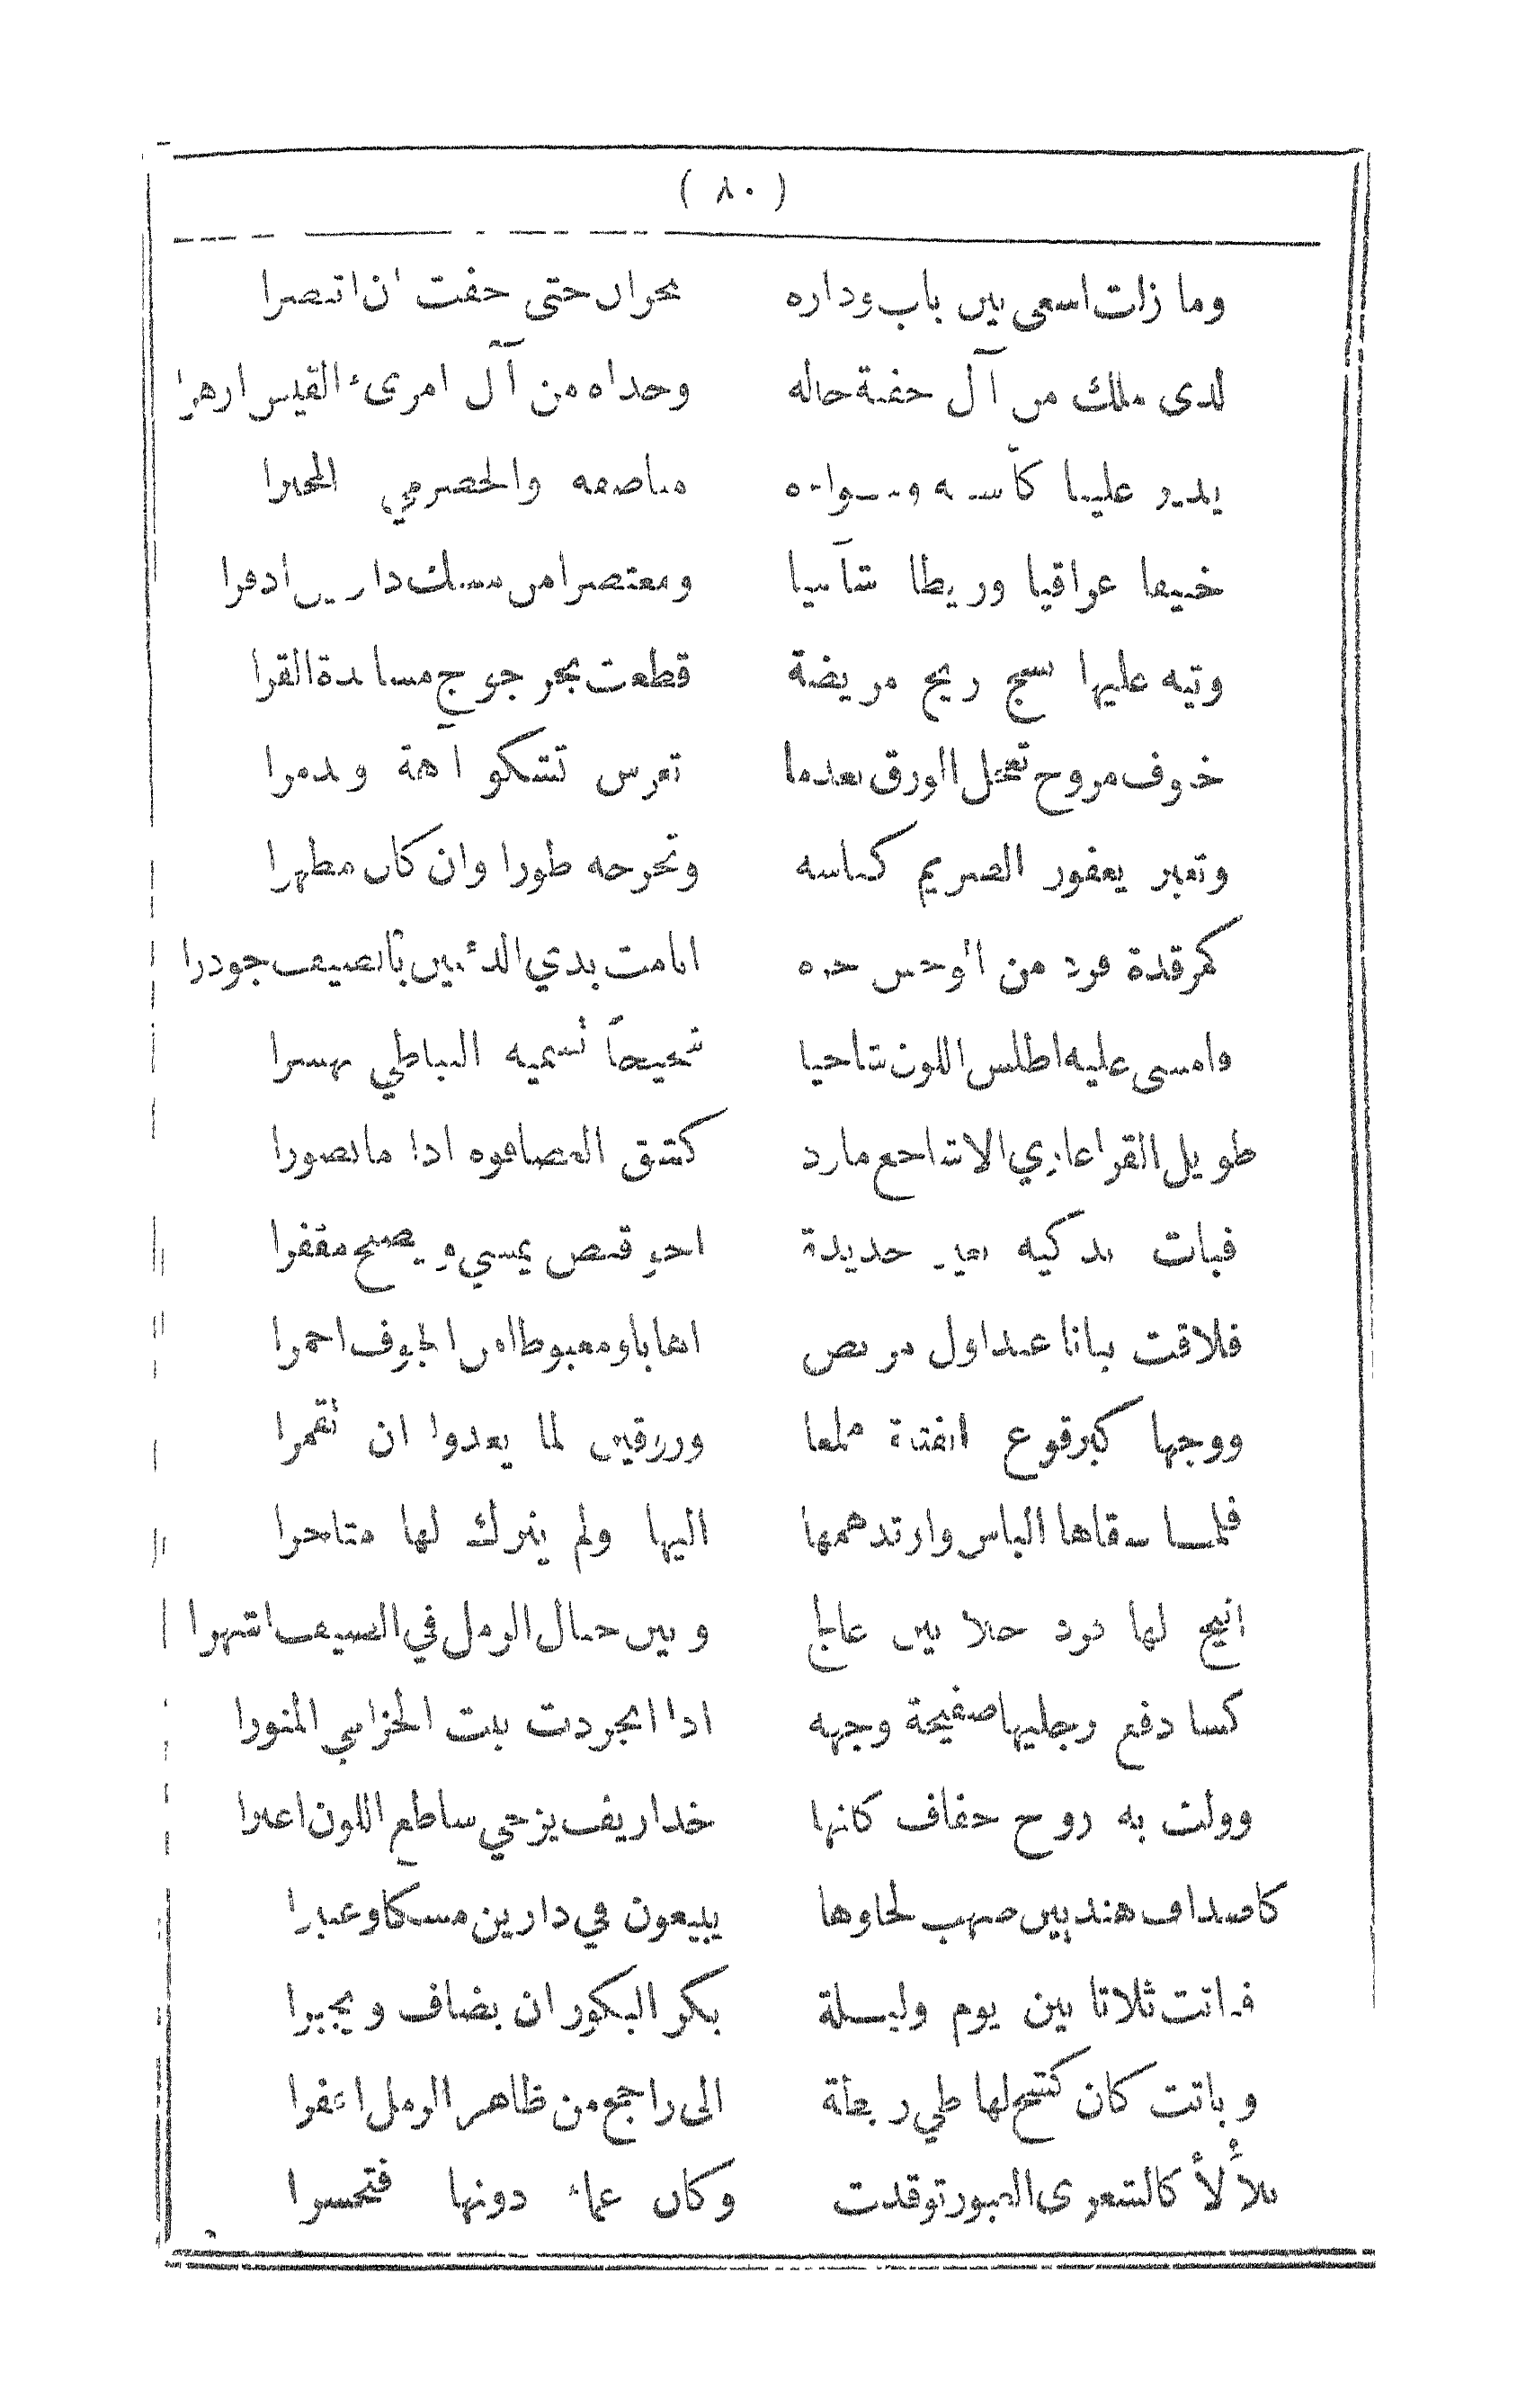 ( ٨٠ )
وما زلت اسعى بين باب وداره نجران حتى خفت ان اتنصرا
لدى ملك من آل جفنة خاله وجداه من آل امرىء القيس ازهرا
يدير علينا كأسه وشواءه مناصفه والحضرمي المحبرا
حنيفا عراقيا وريطا شآميا ومعتصرا من مسك دارين اذفرا
وتيه عليها نسج ريح مريضة قطعت بحرجوج مساندة القرا
خنوف مروح تعجل الورق بعدما تعرس تشكو آهة وتذمرا
وتعبر يعفور الصريم كناسه وتخرجه طورا وان كان مظهرا
كمرقدة فرد من الوحش حرة انامت بذي الذئبين بالصيف جوذرا
وامسى عليه اطلس اللون شاحبا شحيحاً تسميه النباطي نهسرا
طويل القرا عاري الاشاجع مارد كشق العصا فوه اذا ما تضورا
فبات يذكيه بغير حديدة اخو قنص يمسي ويصبح مقفرا
فلاقت بيانا عند اول مربض اهابا ومعبوطا من الجوف احمرا
ووجها كبرقوع الفتاة ملمعا وروقين لما يعدوا ان تقمرا
فلما سقاها الياس وارتد همها اليها ولم يترك لها متأخرا
اتيح لها فرد خلا بين عالج وبين حبال الرمل في الصيف اشهرا
كسا دفع رجليها صفيحة وجهه اذا انجردت نبت الخزامى المنورا
وولت به روح خفاف كانها خذاريف يزجي ساطع اللون اغبرا
كاصداف هنديين صهب لحاوها يبيعون في دارين مسكا وعنبرا
فباتت ثلاثا بين يوم وليلة بكر البكور ان يضاف ويجبرا
وباتت كان كشح لها طي ريطة الى راجح من ظاهر الرمل اعفرا
تلألأ كالشعرى العبور توقدت وكان عماء دونها فتحسرا